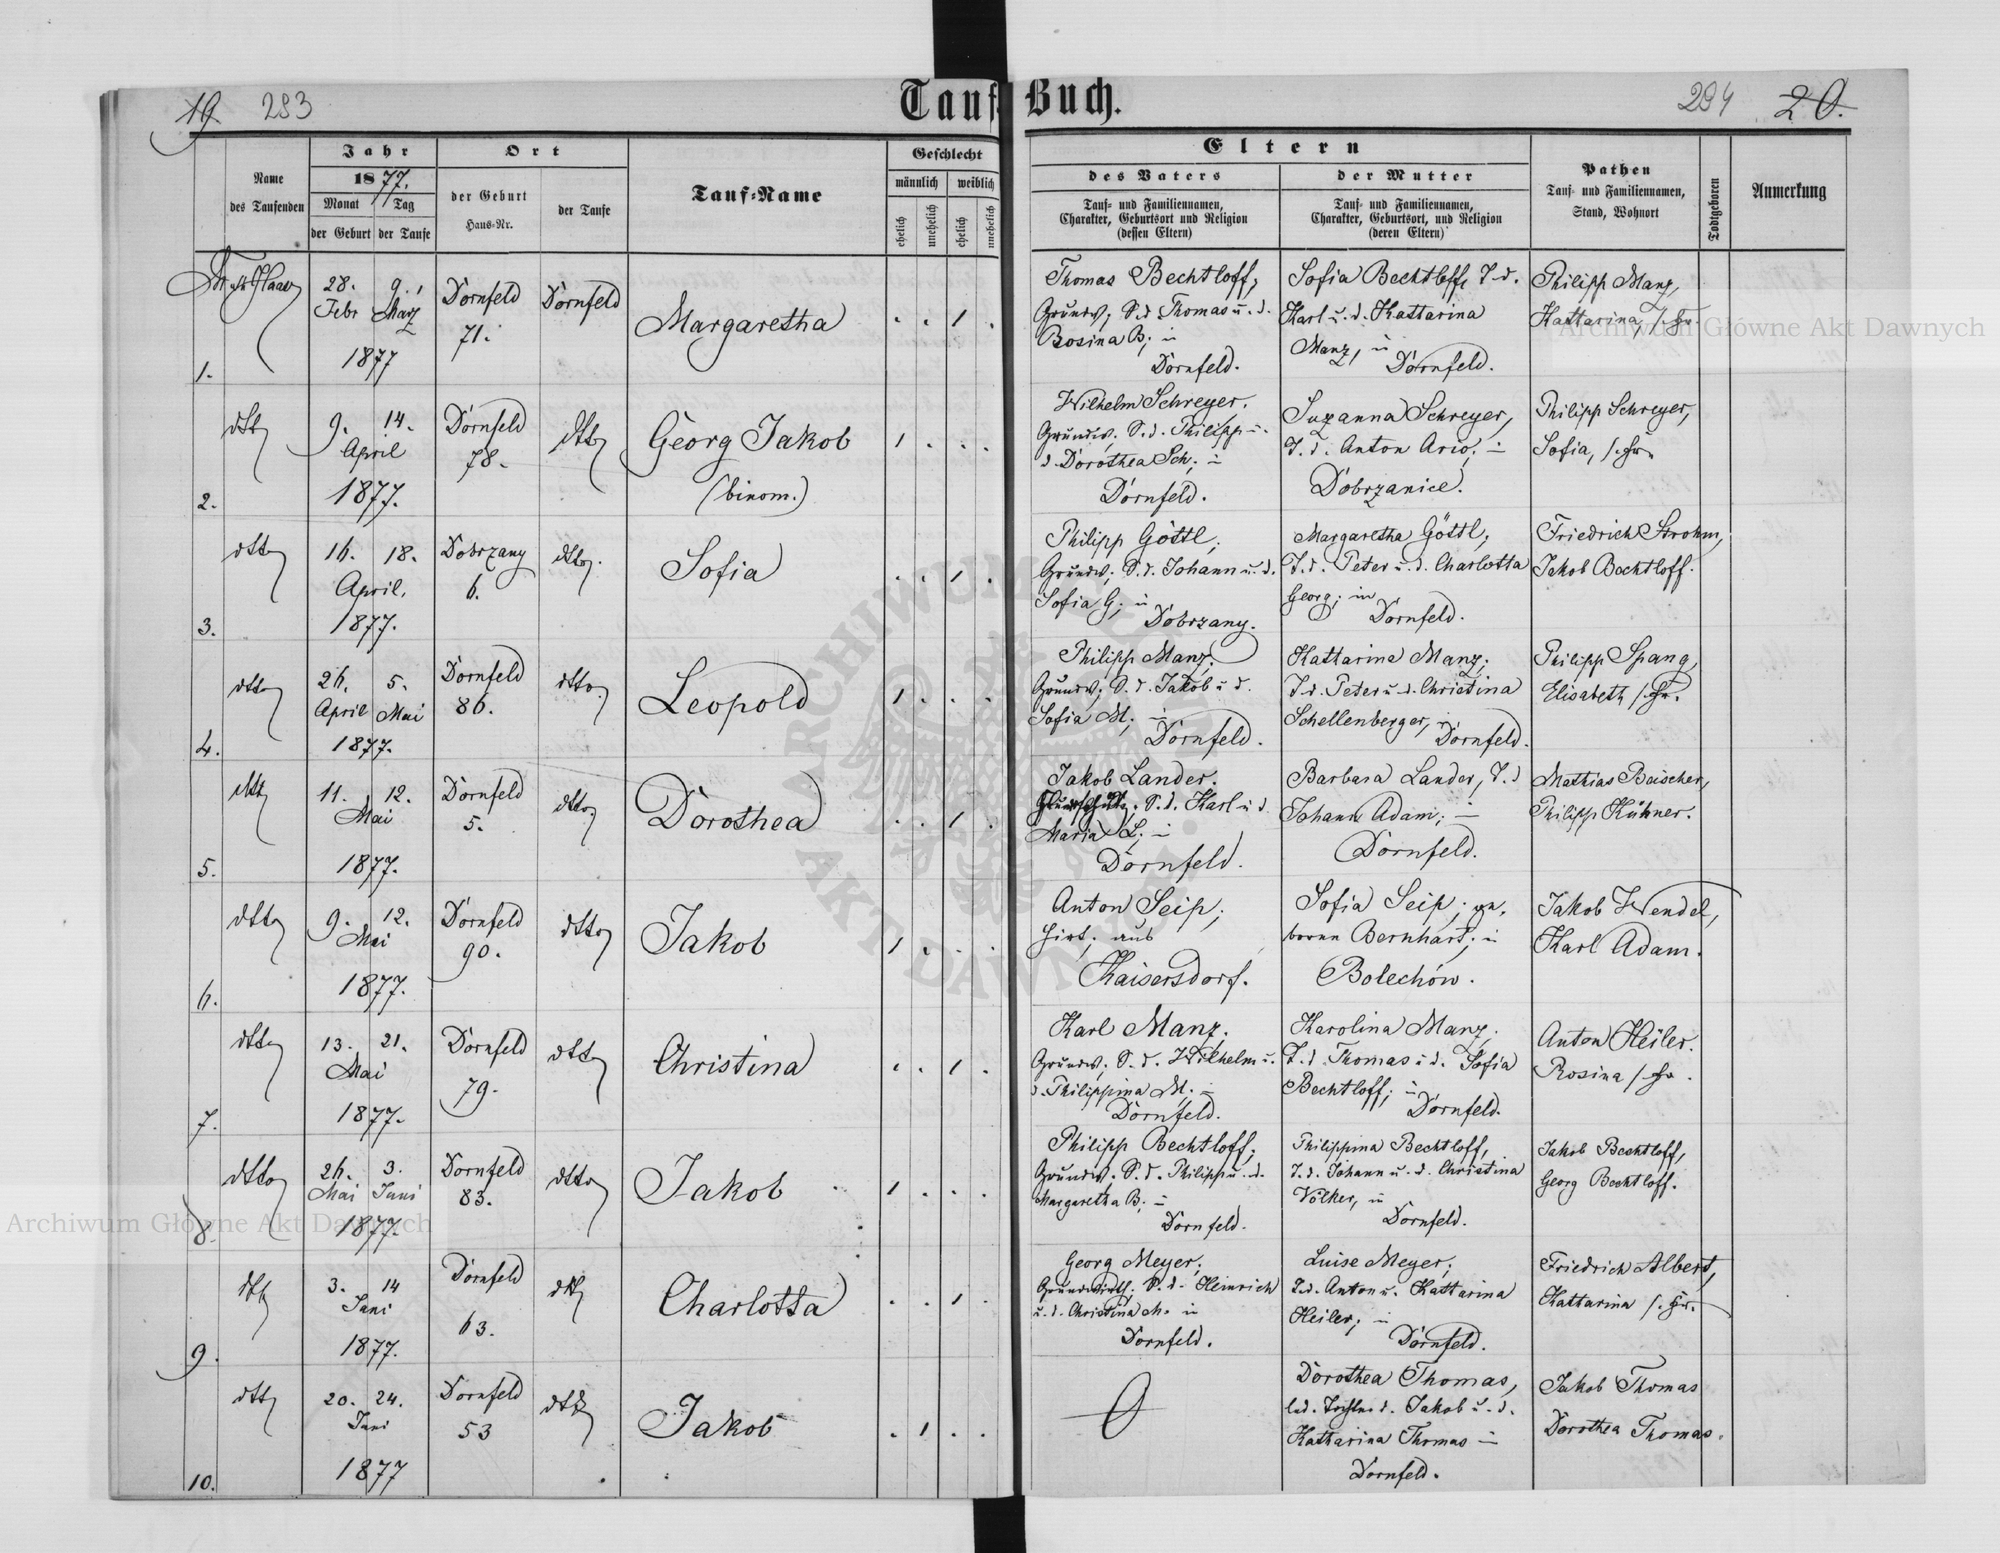 19. 293
Tauf-Buch.
294 20.
Name
des Taufenden
Jahr
1877.
Monat Tag
der Geburt der Taufe
Ort
der Geburt
Haus-Nr.
der Taufe
Tauf-Name
Geschlecht
männlich weiblich
ehelich unehelich ehelich unehelich
Eltern
des Vaters
Tauf- und Familiennamen,
Charakter, Geburtsort und Religion
(dessen Eltern)
der Mutter
Tauf- und Familiennamen,
Charakter, Geburtsort, und Religion
(deren Eltern)
Pathen
Tauf- und Familiennamen,
Stand, Wohnort
Todtgeboren
Anmerkung
1.
28. 9.
Febr März
1877
Dornfeld
71.
Dornfeld
Margaretha
. . 1 .
Thomas Bechtloff,
Grundw; S.d. Thomas u. d.
Rosina B; in
Dornfeld.
Sofia Bechtloff, T.d.
Karl u. d. Kattarina
Manz, in
Dornfeld.
Philipp Manz,
Kattarina,
2.
dtto
9. 14.
April
1877.
Dornfeld
78.
dtto
Georg Jakob
(binom.)
1 . . .
Wilhelm Schreyer.
Grundw; S.d. Philipp u.
d. Dorothea Sch; in
Dornfeld.
Suzanna Schreyer,
T. d. Anton Ario; in
Dobrzanice.
Philipp Schreyer,
Sofia,
3.
dtto
16. 18.
April.
1877.
Dobrzany
6.
dtto.
Sofia
. . 1 .
Philipp Göttl,
Grundw; S.d. Johann u. d.
Sofia G; in
Dobrzany.
Margaretha Göttl,
T.d. Peter u. d. Charlotta
Georg; in
Dornfeld.
Friedrich Strohm,
Jakob Bechtloff.
4.
dtto
26. 5.
April Mai
1877.
Dornfeld
86.
dtto.
Leopold
1 . . .
Philipp Manz;
Grundw; S. d. Jakob u d.
Sofia M; in
Dornfeld.
Kattarina Manz;
T.d. Peter u. d. Christina
Schellenberger, in
Dornfeld.
Philipp Spang,
Elisabeth
5.
dtto
11. 12.
Mai
1877.
Dornfeld
5.
dtto
Dorothea
. . 1 .
Jakob Lander.
S.d. Karl u d
Maria L; in
Dornfeld.
Barbara Lander, T.d
Johann Adam; in
Dornfeld.
Mathias Beischer,
Philipp Kühner.
6.
dtto
9. 12.
Mai
1877.
Dornfeld
90.
dtto
Jakob
1 . . .
Anton Seip;
Hirt; aus
Kaisersdorf.
Sofia Seip; ge-
borne Bernhart; in
Bolechów.
Jakob Wendel,
Karl Adam.
7.
dtto
13. 21.
Mai
1877.
Dornfeld
79.
dtto
Christina
. . 1 .
Karl Manz.
Grundw; S. d. Wilhelm u.
d. Philippina M; in
Dornfeld.
Karolina Manz,
T. d. Thomas u d. Sofia
Bechtloff; in
Dornfeld.
Anton Heiler.
Rosina
8.
dtto
26. 3.
Mai Juni
1877.
Dornfeld
83.
dtto
Jakob
1 . . .
Philipp Bechtloff;
Grundw; S. d. Philipp u. d.
Margaretha B; in
Dornfeld.
Philippina Bechtloff,
T. d. Johann u. d. Christina
Völker, in
Dornfeld.
Jakob Bechtloff,
Georg Bechtloff.
9.
dtto
3. 14
Juni
1877.
Dornfeld
63.
dtto
Charlotta
. . 1 .
Georg Meyer;
Grundwirth; S. d. Heinrich
u. d. Christina M. in
Dornfeld.
Luise Meyer;
T.d. Anton u. Kattarina
Heiler; in
Dornfeld.
Friedrich Albert,
Kattarina
10.
dtto
20. 24.
Juni
1877
Dornfeld
53
dtto
Jakob
. 1 . .
Dorothea Thomas,
led. Tochter d. Jakob u. d.
Katharina Thomas in
Dornfeld.
Jakob Thomas
Dorothea Thomas.
Archiwum Główne Akt Dawnych
Archiwum Główne Akt Dawnych